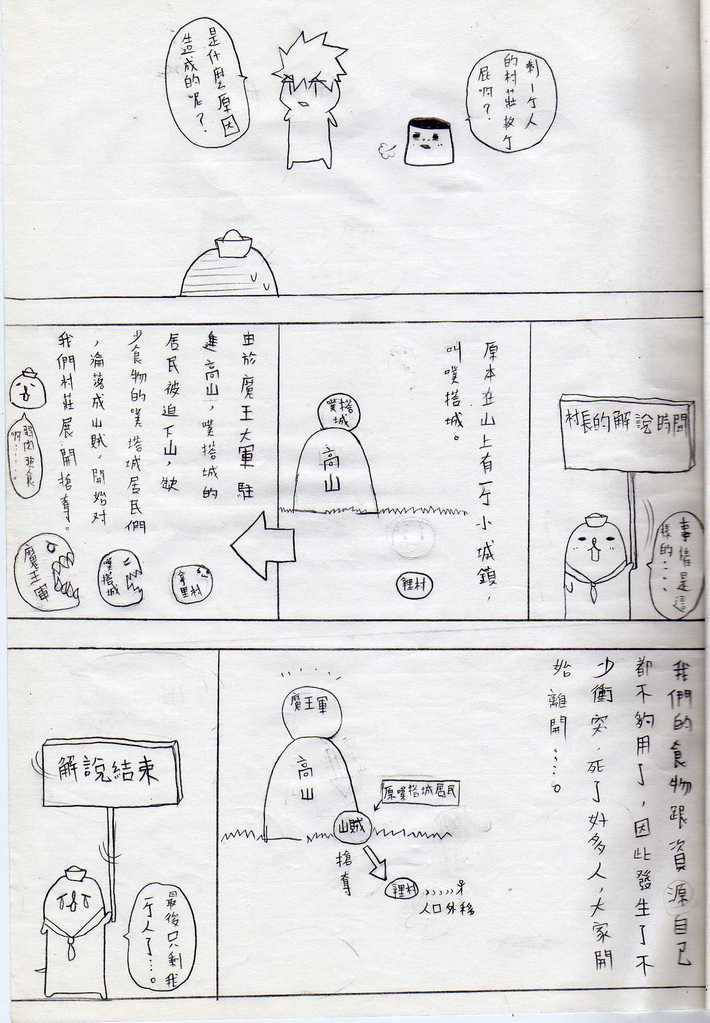 剩一个人
的村莊救个
屁啊?
是什麼原因
造成的呢?
村長的解說時間
事情是這
樣的....
原本在山上有一个小城鎮,
叫噗塔城。
噗塔
城
高山
裡村
由於魔王大軍駐
進高山,噗塔城的
居民被迫下山,缺
少食物的噗塔城居民們
,淪落成山賊,開始對
我們村莊展開搶奪。
魔王軍
噗塔城
我們的食物跟資源自己
都不夠用了,因此發生了不
少衝突,死了好多人,大家開
始離開....。
魔王軍
高山
原噗塔城居民
山賊
搶奪
裡村
人口外移
解說結束
最後只剩我
一个人了...。